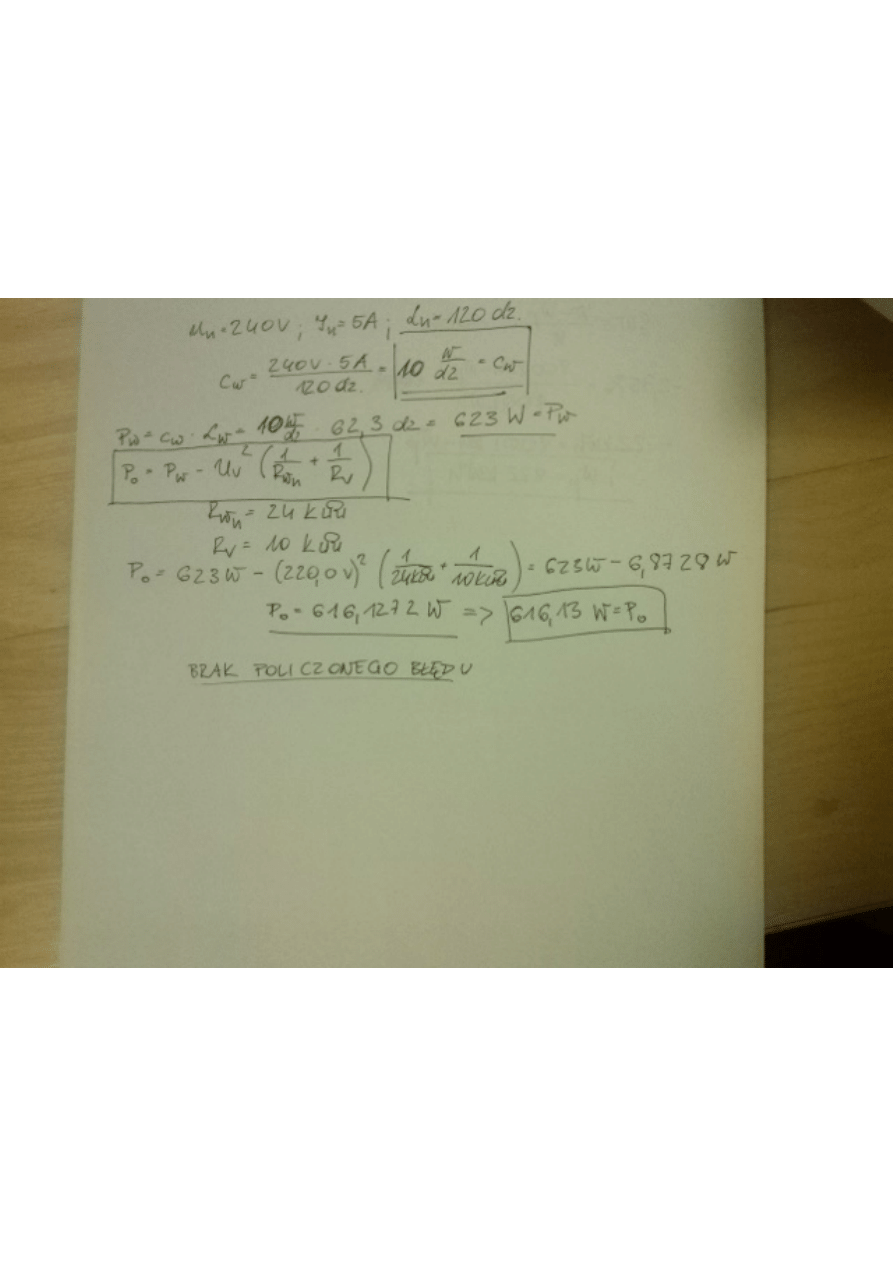 Un = 240V ; In = 5A ; αn = 120 dz.
Cw = 240V · 5A / 120 dz. = 10 W/dz = Cw
Pw = Cw · αw = 10 W/dz · 62,3 dz = 623 W = Pw
Po = Pw - Uv² (1/Rwn + 1/Rv)
Rwn = 24 kΩ
Rv = 10 kΩ
Po = 623W - (220,0V)² (1/24kΩ + 1/10kΩ) = 623W - 6,8728W
Po = 616,1272 W => 616,13 W = Po
BRAK POLICZONEGO BŁĘDU